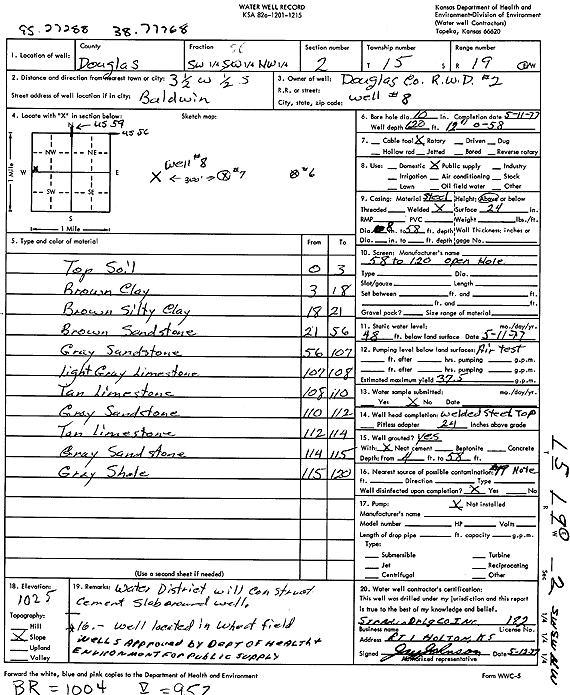 WATER WELL RECORD
KSA 82a-1201-1215
Kansas Department of Health and
Environment-Division of Environment
(Water well Contractors)
Topeka, Kansas 66620
95.27288 38.77768
1. Location of well: County Douglas Fraction SW 1/4 SW 1/4 NW 1/4 Section number 2 Township number T 15 S Range number R 19 E/W
2. Distance and direction from nearest town or city: 3 1/2 W 1/2 S
Street address of well location if in city: Baldwin
3. Owner of well: Douglas Co. R.W.D. #2
R.R. or street: Well #8
City, state, zip code:
4. Locate with "X" in section below: Sketch map:
N US 59
US 56
NW NE
W E
SW SE
S
1 Mile
1 Mile
Well #8
X ← 300' → X #7 X #6
5. Type and color of material From To
Top Soil 0 3
Brown Clay 3 18
Brown Silty Clay 18 21
Brown Sandstone 21 56
Gray Sandstone 56 107
Light Gray Limestone 107 108
Tan Limestone 108 110
Gray Sandstone 110 112
Tan Limestone 112 114
Gray Sandstone 114 115
Gray Shale 115 120
(Use a second sheet if needed)
6. Bore hole dia. 10 in. Completion date 5-11-77
Well depth 120 ft. 12" 0-58
7. Cable tool X Rotary Driven Dug
Hollow rod Jetted Bored Reverse rotary
8. Use: Domestic X Public supply Industry
Irrigation Air conditioning Stock
Lawn Oil field water Other
9. Casing: Material Steel Height: Above or below
Threaded Welded X Surface 24 in.
RMP PVC Weight lbs./ft.
Dia. 8 in. to 58 ft. depth Wall Thickness: inches or
Dia. in. to ft. depth gage No.
10. Screen: Manufacturer's name
58 to 120 open Hole
Type Dia.
Slot/gauze Length
Set between ft. and ft.
ft. and ft.
Gravel pack? Size range of material
11. Static water level: mo./day/yr.
48 ft. below land surface Date 5-11-77
12. Pumping level below land surfaces: Air test
ft. after hrs. pumping g.p.m.
ft. after hrs. pumping g.p.m.
Estimated maximum yield 37.5 g.p.m.
13. Water sample submitted: mo./day/yr.
Yes X No Date
14. Well head completion: Welded Steel Top
Pitless adapter 24 Inches above grade
15. Well grouted? yes
With: X Neat cement Bentonite Concrete
Depth: From 4 ft. to 58 ft.
16. Nearest source of possible contamination: None
ft. Direction Type
Well disinfected upon completion? X Yes No
17. Pump: X Not installed
Manufacturer's name
Model number HP Volts
Length of drop pipe ft. capacity g.p.m.
Type:
Submersible Turbine
Jet Reciprocating
Centrifugal Other
18. Elevation: 1025
Topography:
Hill
X Slope
Upland
Valley
19. Remarks: Water District will Construct
Cement Slab around well.
16.- Well located in wheat field
Wells Approved by Dept of Health &
Environment for Public Supply
20. Water well contractor's certification:
This well was drilled under my jurisdiction and this report
is true to the best of my knowledge and belief.
182
Business name License No.
Address Rt 1 Holton, KS
Signed Date
Authorized representative
Forward the white, blue and pink copies to the Department of Health and Environment Form WWC-5
BR = 1004 V = 957
T 15 R 19 W Sec 2 SW SW NW
1/4 1/4 1/4